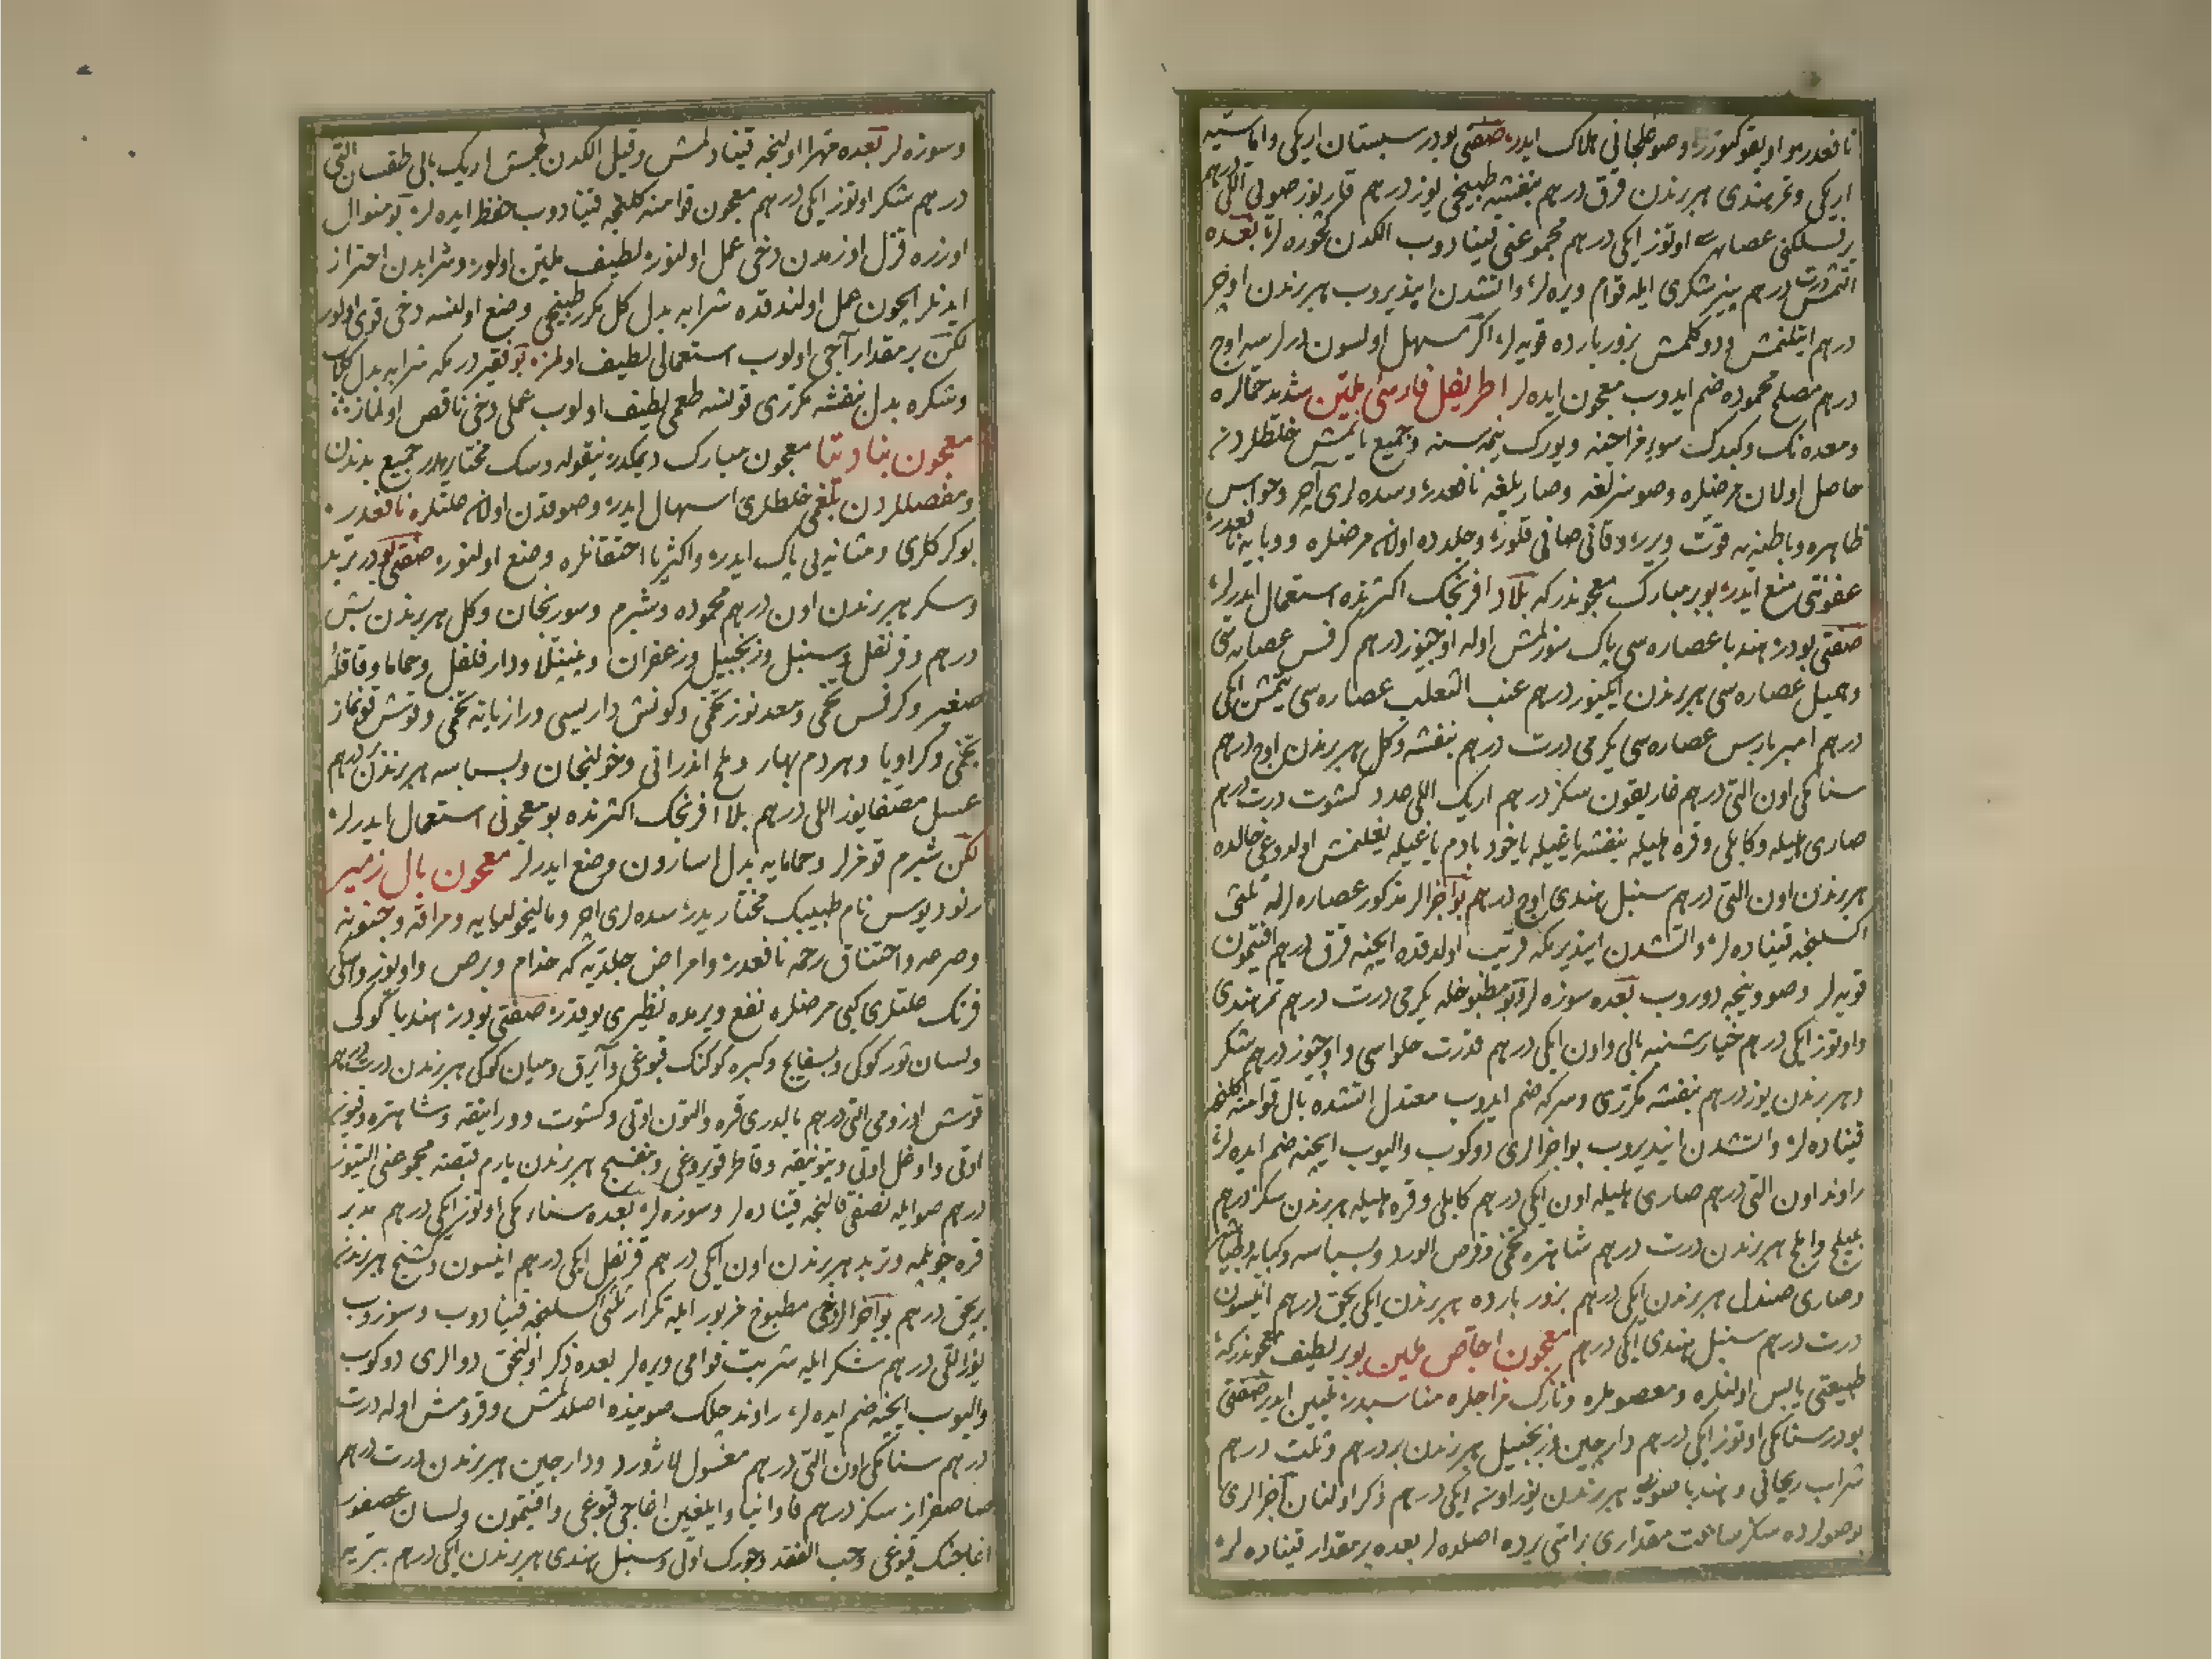 نافعدر هوا اویقو کتورر وصو خلجانی هلاک ایدر صفتی بودر سبستان اریکی واماسیه
اریکی وتمرهندی هر برندن قرق درهم بنفشه طبیخی یوز درهم قارپوز صویی اللی درهم
اوتوز ایکی درهم مجموعنی قینادوب الکدن کچوره لر بعده
التمش درت درهم پنیز شکری ایله قوام ویره لر واتشدن ایندیروب هر برندن اوچر
درهم ایتلنمش ودوکلمش بزور بارده قویه لر اکر مسهل اولسون درلرسه اوچ
درهم مصلح محموده ضم ایدوب معجون ایده لر اطریفل فارسی ملین شدید حمالره
ومعده نک وکبدک سوء مزاجنه ویورک یتمه سنه وجمیع یانمش خلطلردن
حاصل اولان مرضلره وصوسزلغه وصاریلغه نافعدر وسده لری آچر وحواس
ظاهره وباطنه یه قوت ویرر وقانی صافی قلور وجلدده اولان مرضلره ووبایه نافعدر
عفونتی منع ایدر بو بر مبارک معجوندر که بلاد افرنجک اکثرنده استعمال ایدرلر
صفتی بودر هندبا عصاره سی پاک سوزلمش اوله اوچیوز درهم کرفس عصاره سی
وهمیل عصاره سی هر برندن ایکیوز درهم عنب الثعلب عصاره سی یتمش ایکی
درهم امبرباریس عصاره سی یکرمی درت درهم بنفشه وکل هر برندن اوچ درهم
سنامکی اون التی درهم غاریقون سکز درهم اریک اللی عدد کشوت درت درهم
صاری هلیله وکابلی وقره هلیله بنفشه یاغیله یاخود بادم یاغیله یغلنمش اولدوغی حالده
هر برندن اون التی درهم سنبل هندی اوچ درهم بو اجزالر مذکور عصاره لرله ثلثی
اکسلنجه قیناده لر واتشدن ایندیرمکه قریب اولدقده ایچنه قرق درهم افتیمون
قویه لر وصووینجه دوروب بعده سوزه لر بو مطبوخله یکرمی درت درهم تمرهندی
واوتوز ایکی درهم خیارشنبه بالی واون ایکی درهم قدرت حلواسی واوچیوز درهم شکر
وهر برندن یوز درهم بنفشه مکرری وسرکه ضم ایدوب معتدل اتشده بال قوامنه کلنجه
قیناده لر واتشدن ایندیروب بو اجزالری دوکوب والیوب ایچنه ضم ایده لر
راوند اون التی درهم صاری هلیله اون ایکی درهم کابلی وقره هلیله هر برندن سکز درهم
بلیلج واملج هر برندن درت درهم شاهتره تخمی وقرص الورد وبسباسه وکبابه وطباشیر
وصاری صندل هر برندن ایکی درهم بزور بارده هر برندن ایکی بچق درهم انیسون
درت درهم سنبل هندی ایکی درهم معجون اجاص ملین بو بر لطیف معجوندر که
طبیعتی یابس اولنلره ومعصوملره ونازک مزاجلره مناسبدر تلیین ایدر صفتی
بودر سنامکی اوتوز ایکی درهم دارچین وزنجبیل هر برندن بر درهم وثلث درهم
شراب ریحانی وهندبا صویی هر برندن یوز اون ایکی درهم ذکر اولنان اجزالری
بو صولرده سکز ساعت مقداری براقی یرده اصلده لر بعده بر مقدار قیناده لر
وسوزه لر بعده مهرا اولنجه قینادلمش وقیل الکدن کچمش اریک بالی طقسان التی
درهم شکر اوتوز ایکی درهم معجون قوامنه کلنجه قینادوب حفظ ایده لر بو منوال
اوزره قزل اوزمدن دخی عمل اولنور لطیف ملین اولور وشرابدن احتراز
ایدنلر ایچون عمل اولندقده شرابه بدل کل مکرر طبیخی وضع اولنسه دخی قوی اولور
لکن بر مقدار آجی اولوب استعمالی لطیف اولمز بو فقیر درمکه شرابه بدل کلاب
وشکره بدل بنفشه مکرری قونسه طعمی لطیف اولوب عملی دخی ناقص اولماز
معجون بنادتتا معجون مبارک دیمکدر نیقوله وسک مختاریدر جمیع بدندن
ومفصللردن بلغمی خلطلری اسهال ایدر وصوقدن اولان علتلره نافعدر
بوکرکلری ومثانه یی پاک ایدر واکثریا احتقانلره وضع اولنور صفتی بودر تربد
وسکر هر برندن اون درهم محموده وشبرم وسورنجان وکل هر برندن بش
درهم وقرنفل وسنبل وزنجبیل وزعفران ودارفلفل وحماما وقاقله
صغیر وکرفس تخمی ومعدنوز تخمی وکونش داریسی ورازیانه تخمی وقوش قونماز
تخمی وکراویا وهردم بهار وملح اندرانی وخولنجان وبسباسه هر برندن بر درهم
عسل مصفا یوز اللی درهم بلاد افرنجک اکثرنده بو معجونی استعمال ایدرلر
لکن شبرم قومزلر وحمامایه بدل اسارون وضع ایدرلر معجون بال زمیر
رنودیوس نام طبیبک مختاریدر سده لری اچر ومالیخولیایه ومراقه وجنونه
وصرعه واختناق رحمه نافعدر وامراض جلدیه که جذام وبرص واویوز واسکی
فرنک علتلری کبی مرضلره نفع ویرمده نظیری یوقدر صفتی بودر هندبا کوکی
ولسان ثور کوکی وبسفایج وکبره کوکنک قبوغی وآیرق ومیان کوکی هر برندن درت درهم
قوش اوزومی التی درهم بالدری قره والتون اوتی وکشوت وشاهتره
اوتی واوغل اوتی وقاطر قویروغی وبنفسج هر برندن یارم قبصه مجموعنی التیوز
درهم صو ایله نصفی قالنجه قیناده لر وسوزه لر بعده سناء مکی اوتوز ایکی درهم مدبر
قره چوپلمه وتربد هر برندن اون ایکی درهم قرنفل ایکی درهم انیسون وکشنیج هر برندن
بر بچق درهم بو اجزالر دخی مطبوخ مزبور ایله تکرار ثلثی اکسلنجه قینادوب وسوزوب
یوز اللی درهم شکر ایله شربت قوامی ویره لر بعده ذکر اولنجق دوالری دوکوب
والیوب ایچنه ضم ایده لر راوند چلک صوینده اصلدلمش وقورومش اوله درت
درهم سنامکی اون التی درهم مغسول لاژورد ودارچین هر برندن درت درهم
صاصفراز سکز درهم غاوانیا وایلغین اغاجی قبوغی وافتیمون ولسان عصفور
اغاجنک قبوغی وحب الفقد وچورک اوتی وسنبل هندی هر برندن ایکی درهم